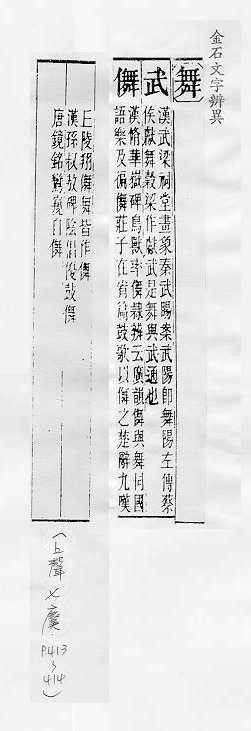 金石文字辨異
舞
武 漢武梁祠堂畫象秦武陽案武陽即舞陽左傳蔡
侯獻舞穀梁作獻武是舞與武通也
儛 漢脩華嶽碑鳥獸率儛隸辨云廣韻儛與舞同國
語樂及徧儛莊子在宥篇鼓歌以儛之楚辭九嘆
丘陵翔儛舞皆作儛
漢孫叔敖碑陰倡優鼓儛
唐鏡銘鸞窺自儛
(上聲七麌
P413
~
414
)